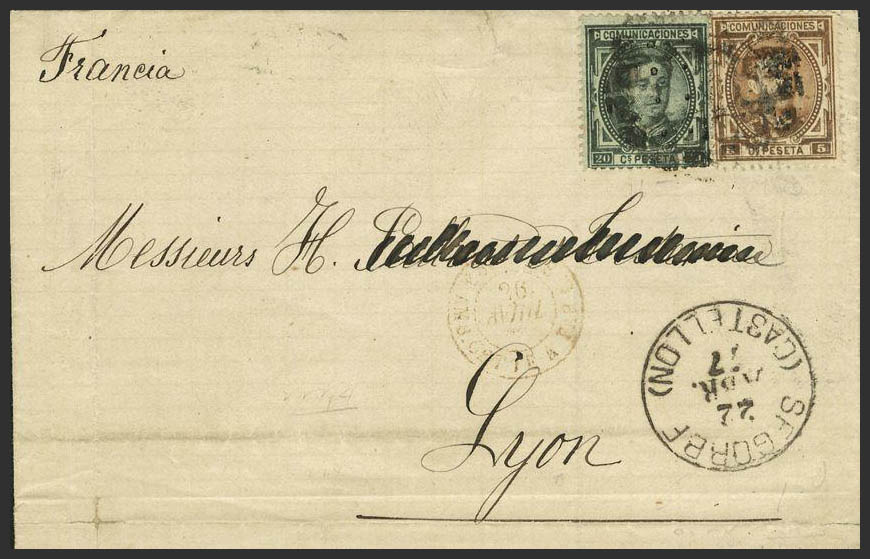 Francia
COMUNICACIONES
20 Cs PESETA
COMUNICACIONES
Cs PESETA 5
Messieurs H.
26
AVRIL
Lyon
SEGORBE
(CASTELLON)
22
ABR.
77